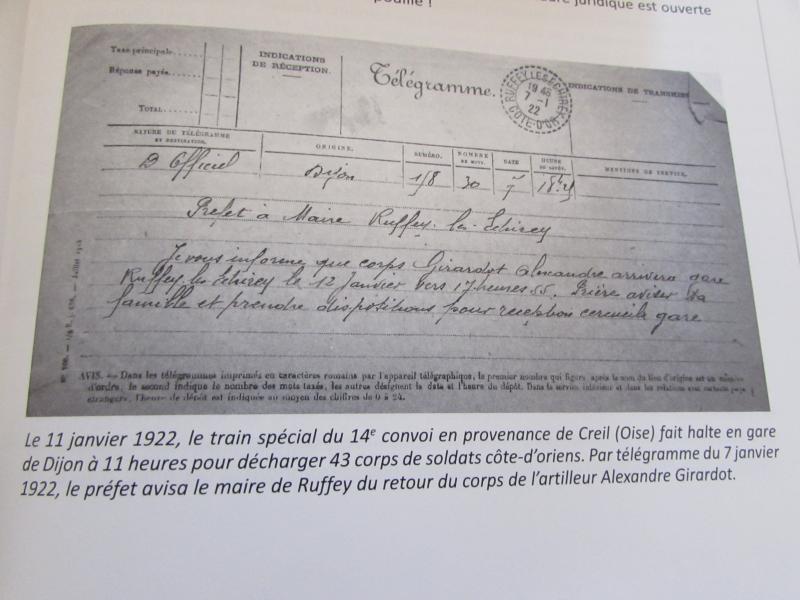 pouille !
ure juridique est ouverte
Taxe principale
Réponse payée
TOTAL
INDICATIONS
DE RÉCEPTION.
Télégramme.
RUFFEY-LES-ECHIREY
19 45
7 - 1
22
COTE-D'OR
INDICATIONS DE TRANSMISSION
NATURE DU TÉLÉGRAMME
ET DESTINATION.
ORIGINE.
NUMÉRO.
NOMBRE
DE MOTS.
DATE
HEURE
DE DÉPÔT.
MENTIONS DE SERVICE.
D Officiel Dijon 1/8 30 7
Préfet à Maire Ruffey-les-Echirey
Je vous informe que corps Girardot Alexandre arrivera gare
Ruffey les Echirey le 12 Janvier vers 17 heures 55. Prière aviser sa
famille et prendre dispositions pour réception cercueil gare
Juillet
AVIS. — Dans les télégrammes imprimés en caractères romains par l'appareil télégraphique, le premier nombre qui figure après le nom du lieu d'origine est un numéro
d'ordre, le second indique le nombre des mots taxés, les autres désignent la date et l'heure du dépôt. Dans le service intérieur et dans les relations avec certains pays
étrangers, l'heure de dépôt est indiquée au moyen des chiffres de 0 à 24.
Le 11 janvier 1922, le train spécial du 14e convoi en provenance de Creil (Oise) fait halte en gare
de Dijon à 11 heures pour décharger 43 corps de soldats côte-d'oriens. Par télégramme du 7 janvier
1922, le préfet avisa le maire de Ruffey du retour du corps de l'artilleur Alexandre Girardot.